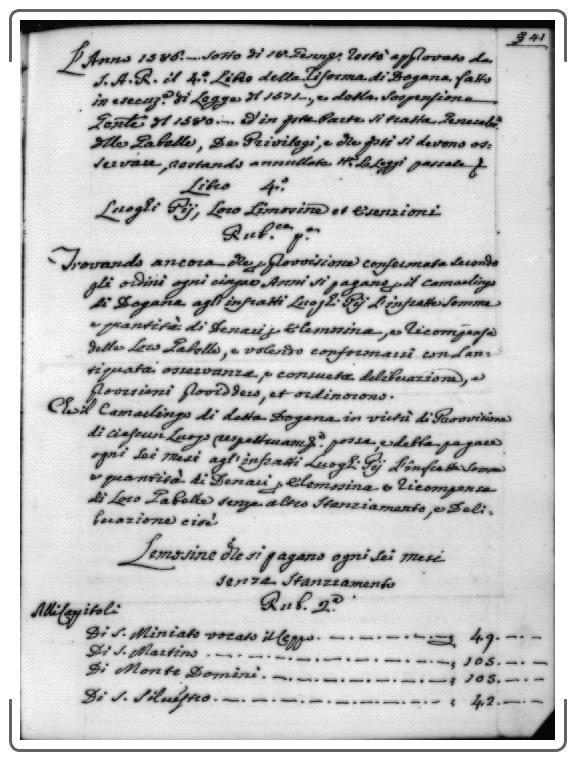 341
L'Anno 1586. sotto dì 18. Genn.º restò approvato da
S. A. R. il 4.º Libro della riforma di Dogana fatto
in esecuz.e di Legge del 1571, e dalla Sospensione
del 1580. ed in q.ta Parte si tratta
delle Gabelle, De Privilegi, e che q.ti si devono os:
servare, restando annullate le Leggi passate
Libro 4.º
Luoghi Pij, Loro Limosine et Esenzioni
Rub.ca p.a
Trovando ancora che p provvisione confermata secondo
gli ordini ogni cinque Anni si pagano p il camarlingo
di Dogana agl'infratti Luoghi Pij l'infratte somme
e quantità di Denari p Elemosina, e Ricompensa
delle Loro Gabelle, e volendo conformarsi con l'an:
tiquata osservanza, p consueta deliberazione, e
provisioni providdero, et ordinorono.
Che il Camarlingo di detta Dogana in virtù di Provvisione
di ciascun Luogo respettivam.e possa, e debba pagare
ogni sei mesi agl'infratti Luoghi Pij l'infratte somme
e quantità di Denari p Elemosina e Ricompensa
di Loro Gabelle senza altro stanziamento, e Deli:
berazione cioè
Lemosine che si pagano ogni sei mesi
senza stanziamento
Rub. 2.a
Alli Capitoli
Di S. Miniato vocato il Ceppo. 49.
Di S. Martino 105.
Di Monte Domini. 105.
Di S. Silvestro. 42.